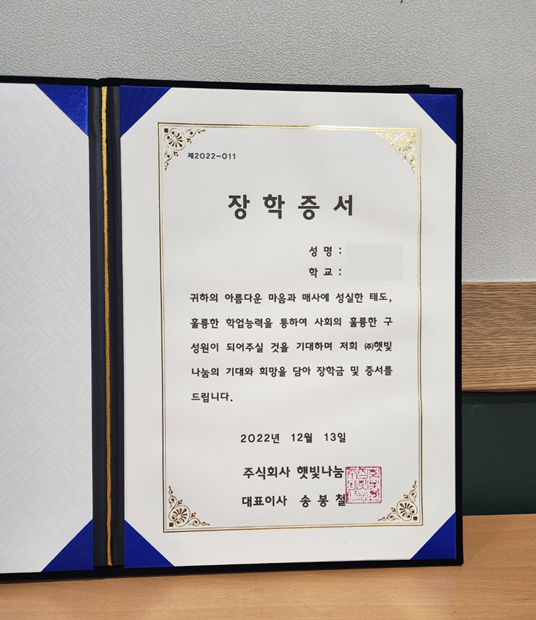 제2022-011
장학증서
성 명 :
학 교 :
귀하의 아름다운 마음과 매사에 성실한 태도,
훌륭한 학업능력을 통하여 사회의 훌륭한 구
성원이 되어주실 것을 기대하며 저희 ㈜햇빛
나눔의 기대와 희망을 담아 장학금 및 증서를
드립니다.
2022년 12월 13일
주식회사 햇빛나눔
대표이사 송봉철